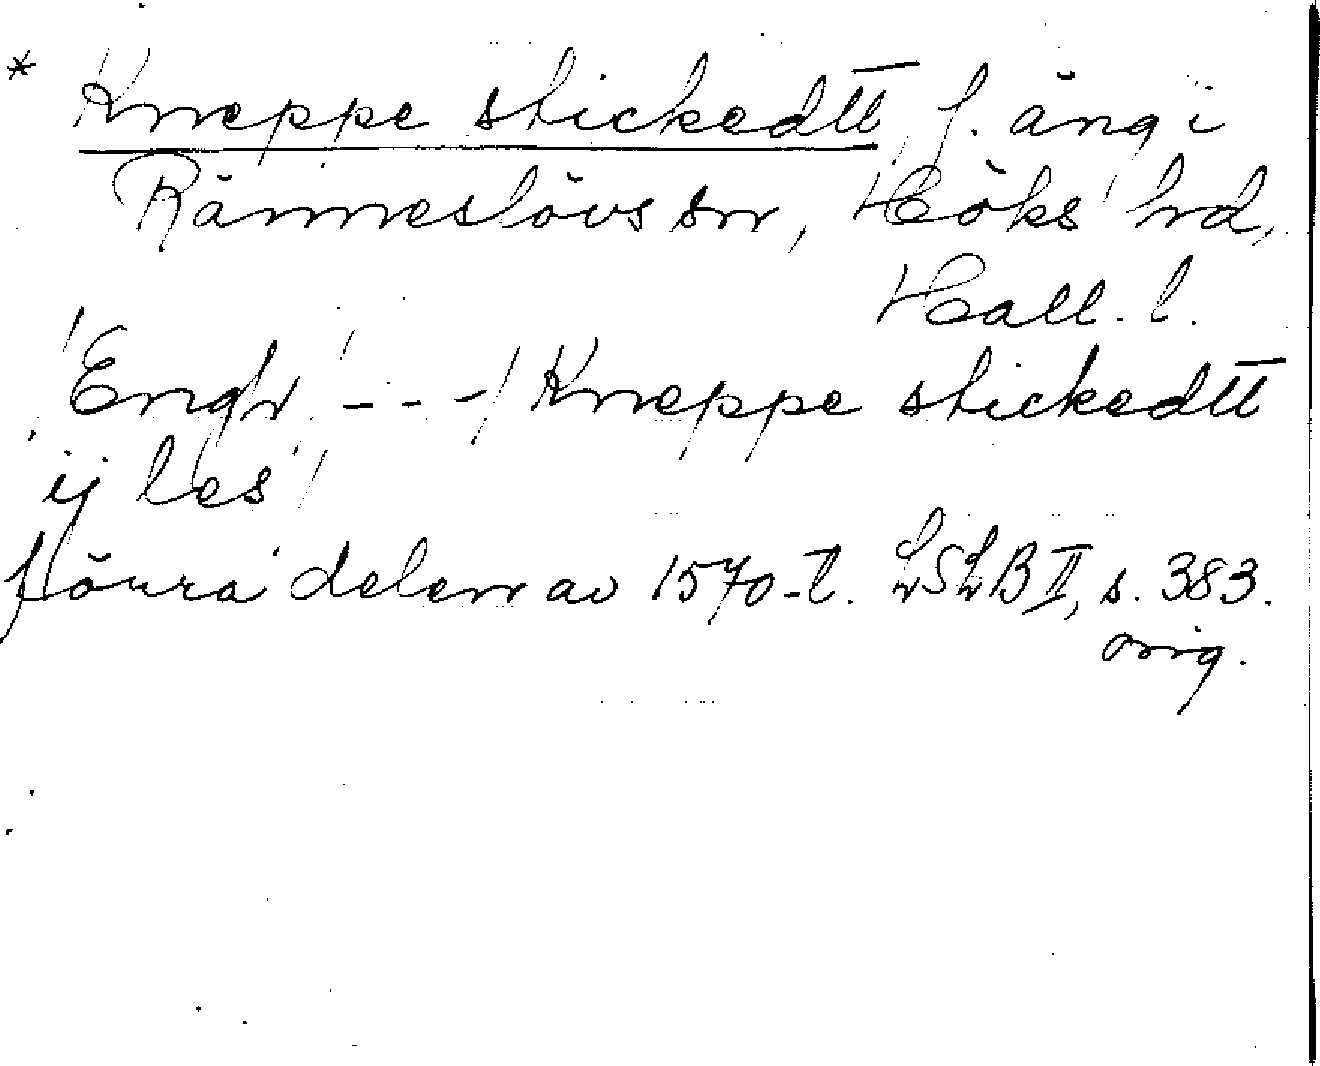 * Kneppe stickedtt, f. äng i
Ränneslövs sn, Höks hd,
Hall. l.
"Engh --- / Kneppe stickedtt
ij les"
förra delen av 1570-t. LSLB II, s. 383.
orig.